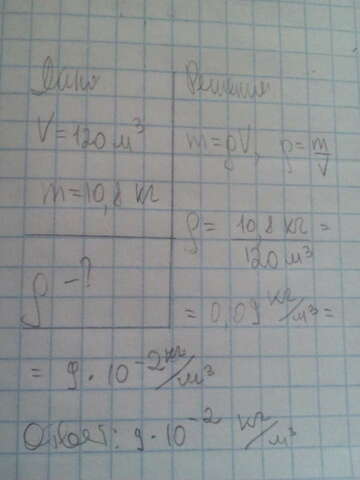 Дано
V = 120 м³
m = 10,8 кг
ρ - ?
Решение
m = ρV, ρ = m/V
ρ = 10,8 кг / 120 м³ =
= 0,09 кг/м³ =
= 9 · 10⁻² кг/м³
Ответ: 9 · 10⁻² кг/м³